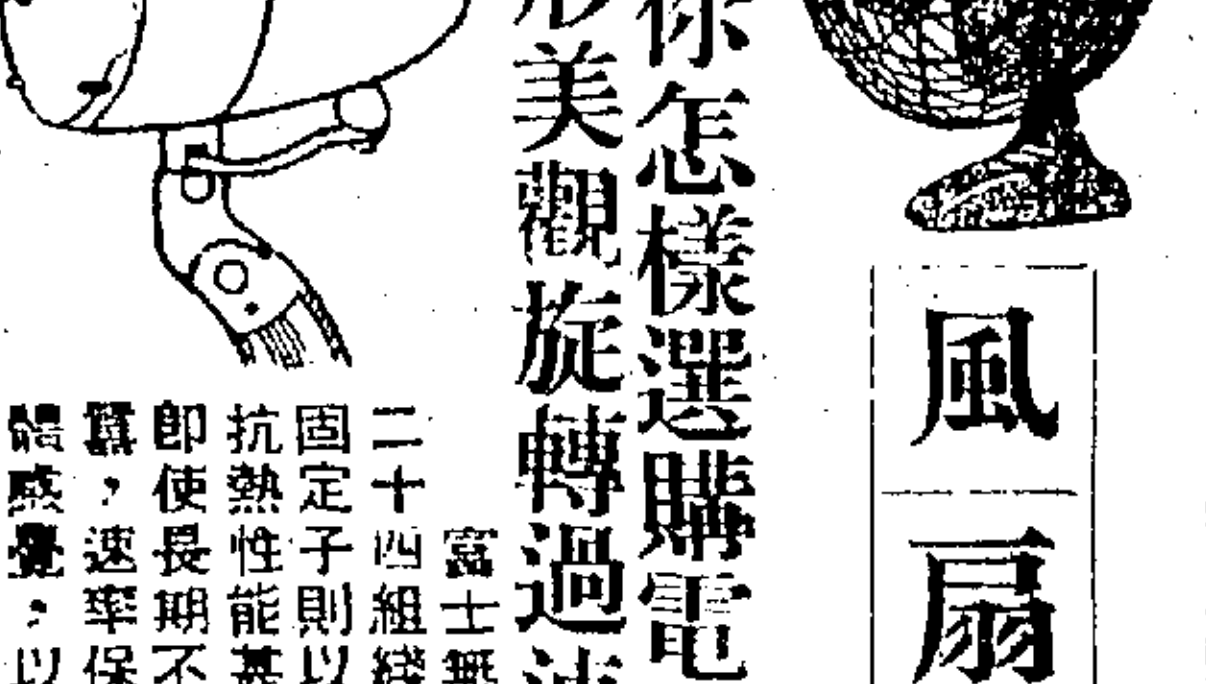 風扇
你怎樣選購電
形美觀旋轉過速
富士無
二十四組綫
固定子則以
抗熱性能甚
即使長期不
，速率保
感覺，以